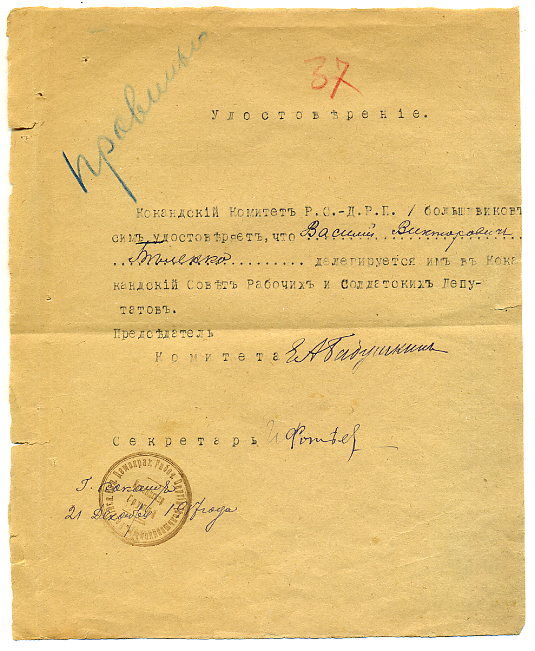 правильно
37
Удостовѣреніе.
Кокандскій Комитетъ Р.С.-Д.Р.П. / большевиковъ
симъ удостовѣряетъ, что Василий Викторович
делегируется имъ въ Кока
кандскій Совѣтъ Рабочихъ и Солдатскихъ Депу-
татовъ.
Предсѣдатель
Комитета Е А Бабушкинъ
Секретарь
Г. Коканд
21 Декабр 1917 года